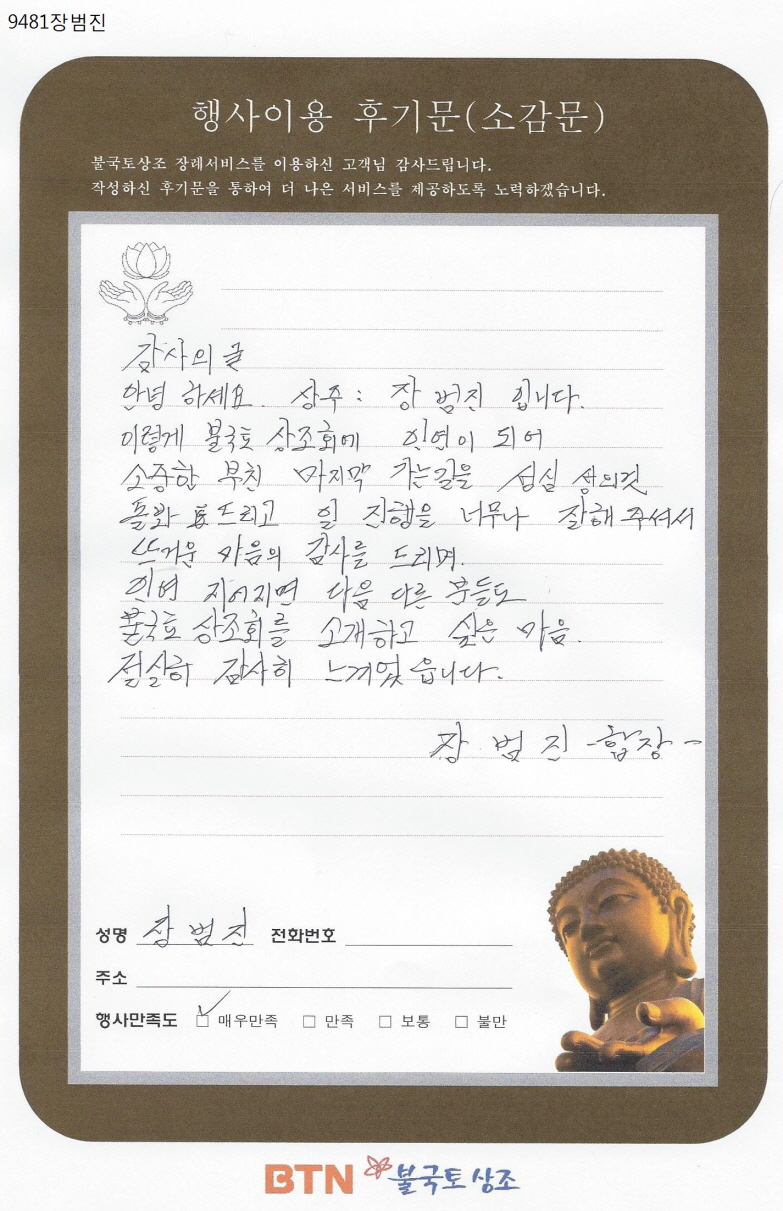 9481장범진
행사이용 후기문(소감문)
불국토상조 장례서비스를 이용하신 고객님 감사드립니다.
작성하신 후기문을 통하여 더 나은 서비스를 제공하도록 노력하겠습니다.
감사의 글
안녕 하세요. 상주: 장 범진 입니다.
이렇게 불국토 상조회에 인연이 되어
소중한 부친 마지막 가는길을 성심 성의것
돌봐 드리고 일 진행을 너무나 잘해 주셔서
뜨거운 마음의 감사를 드리며.
인연 지어지면 다음 다른 분들도
불국토 상조회를 소개하고 싶은 마음.
절실히 감사히 느끼었습니다.
장 범 진 -합장-
성명 장 범 진 전화번호
주소
행사만족도 매우만족 만족 보통 불만
BTN 불국토 상조